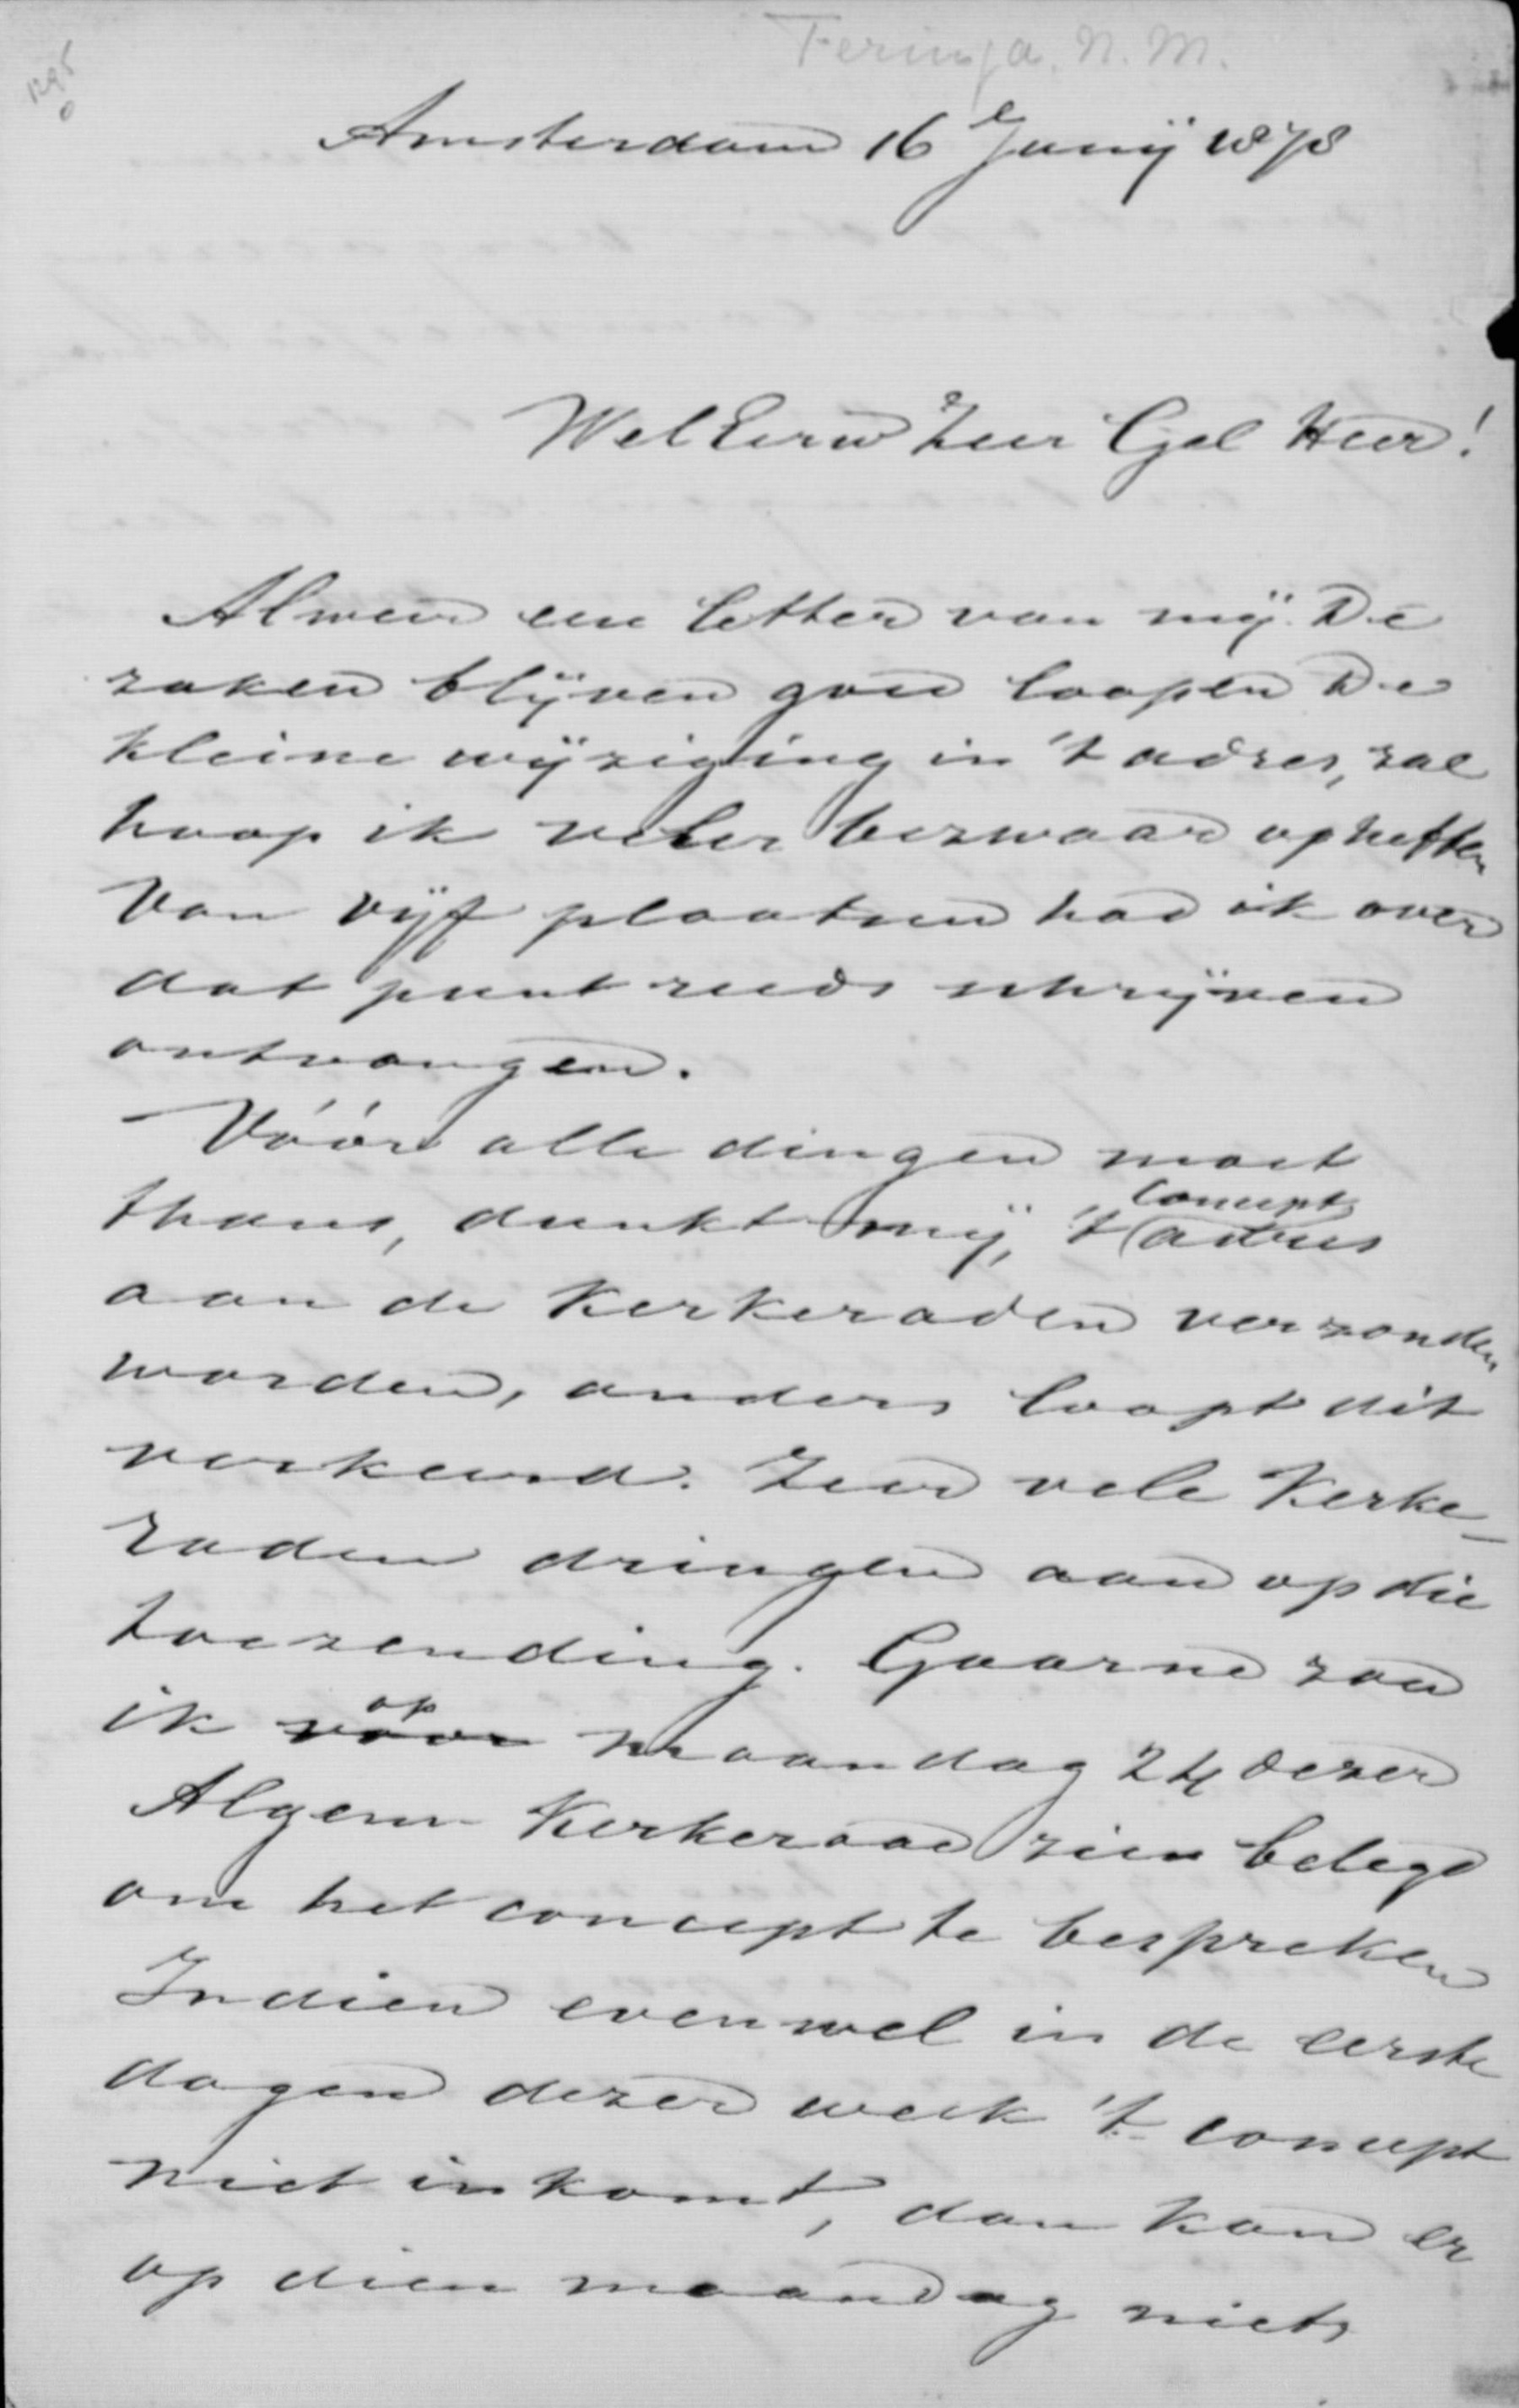 Feringa, N. M.
Amsterdam 16e Junij 1878
WelEerw Zeer Gel Heer!
Alweer een letter van mij. De
zaken blijven goed loopen De
kleine wijziging in 't adres, zal
hoop ik veler bezwaar opheffen
Van vijf plaatsen had ik over
dat punt reeds schrijven
ontvangen.
Vóór alle dingen moet
thans, dunkt mij, 't concept adres
aan de Kerkeraden verzonden
worden, anders loopt dit
verkeerd. Zeer vele Kerke-
raden dringen aan op die
toezending. Gaarne zou
ik vóór op maandag 24 dezer
Algem Kerkeraad zien belegd
om het concept te bespreken
Indien evenwel in de eerste
dagen dezer week 't concept
niet inkomt, dan kan er
op dien maandag niets